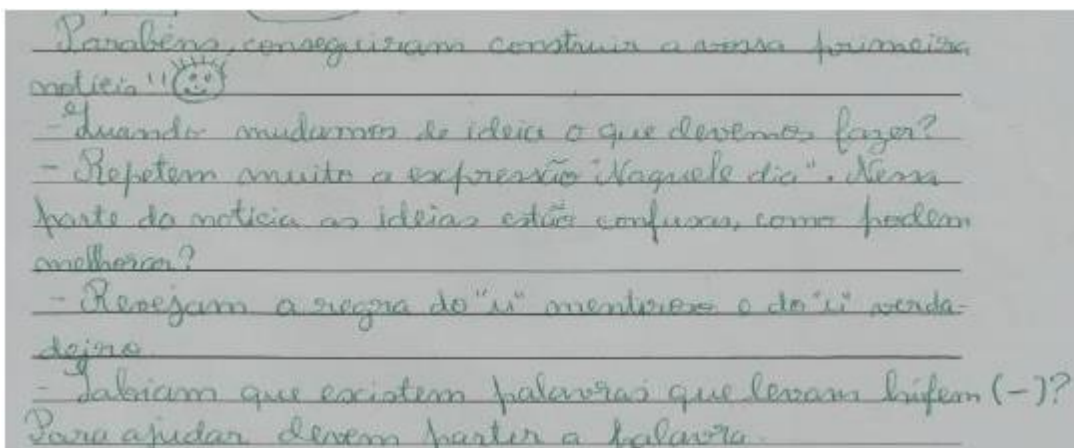 Parabéns, conseguiram construir a vossa primeira
notícia!!
- Quando mudamos de ideia o que devemos fazer?
- Repetem muito a expressão "Naquele dia". Nessa
parte da notícia as ideias estão confusas, como podem
melhorar?
- Revejam a regra do "u" mentiroso e do "u" verda-
deiro.
- Sabiam que existem palavras que levam hífem (-)?
Para ajudar devem partir a palavra.